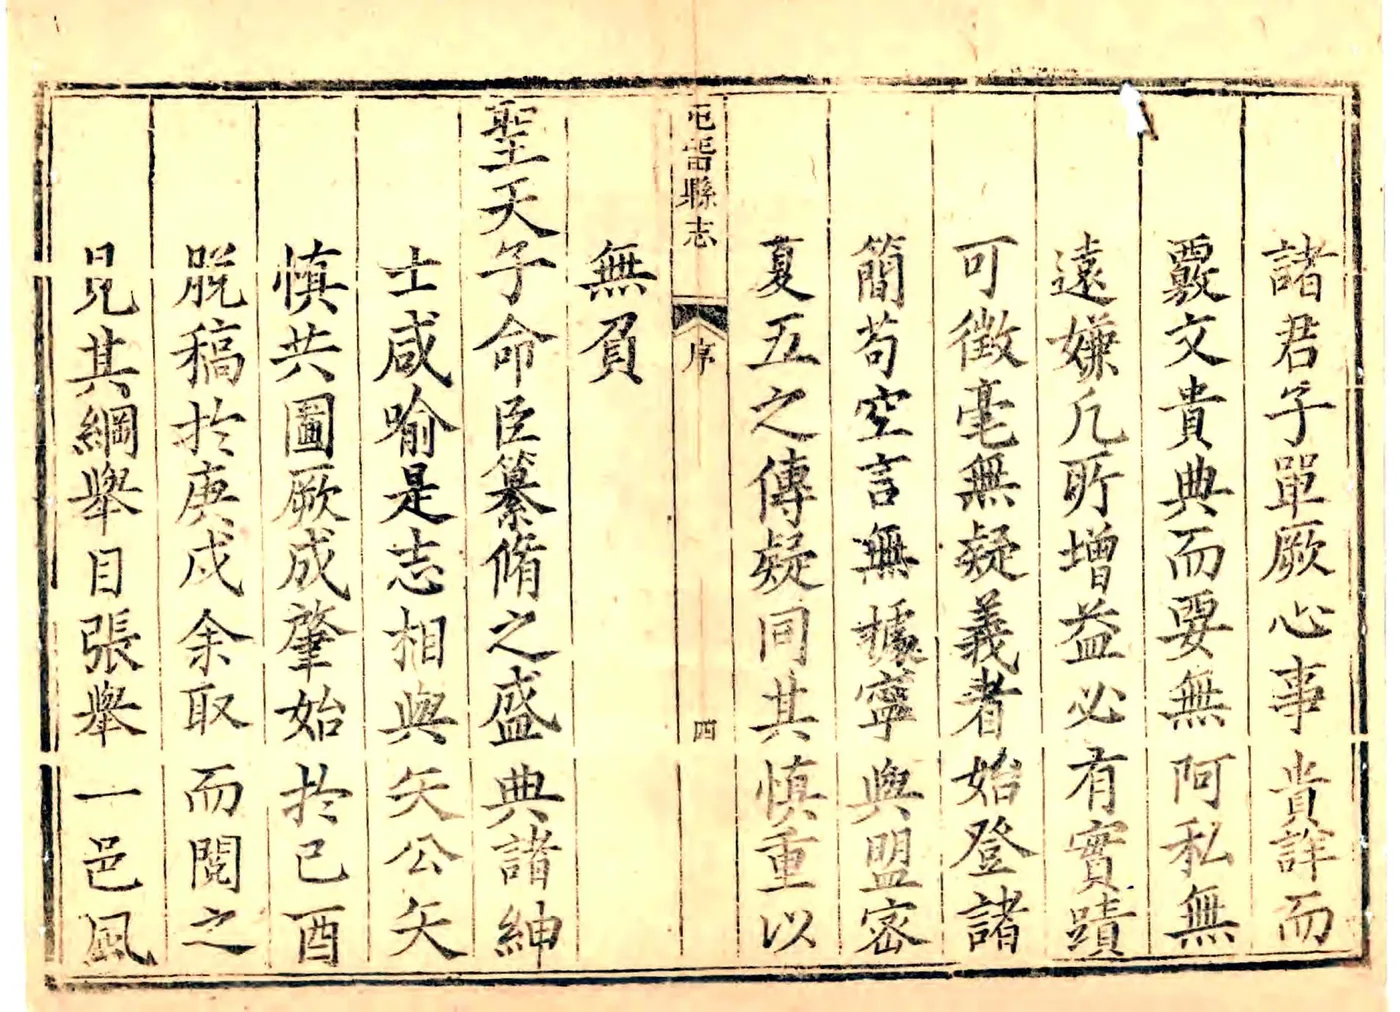 諸君子單厥心事貴詳而
覈文貴典而要無阿私無
遠嫌凡所增益必有實蹟
可徵毫無疑義者始登諸
簡苟空言無據寧與盟密
夏五之傳疑同其慎重以
屯畱縣志
序
四
無負
聖天子命臣纂脩之盛典諸紳
士咸喻是志相與矢公矢
慎共圖厥成肇始於己酉
脫稿於庚戌余取而閱之
見其綱舉目張舉一邑風